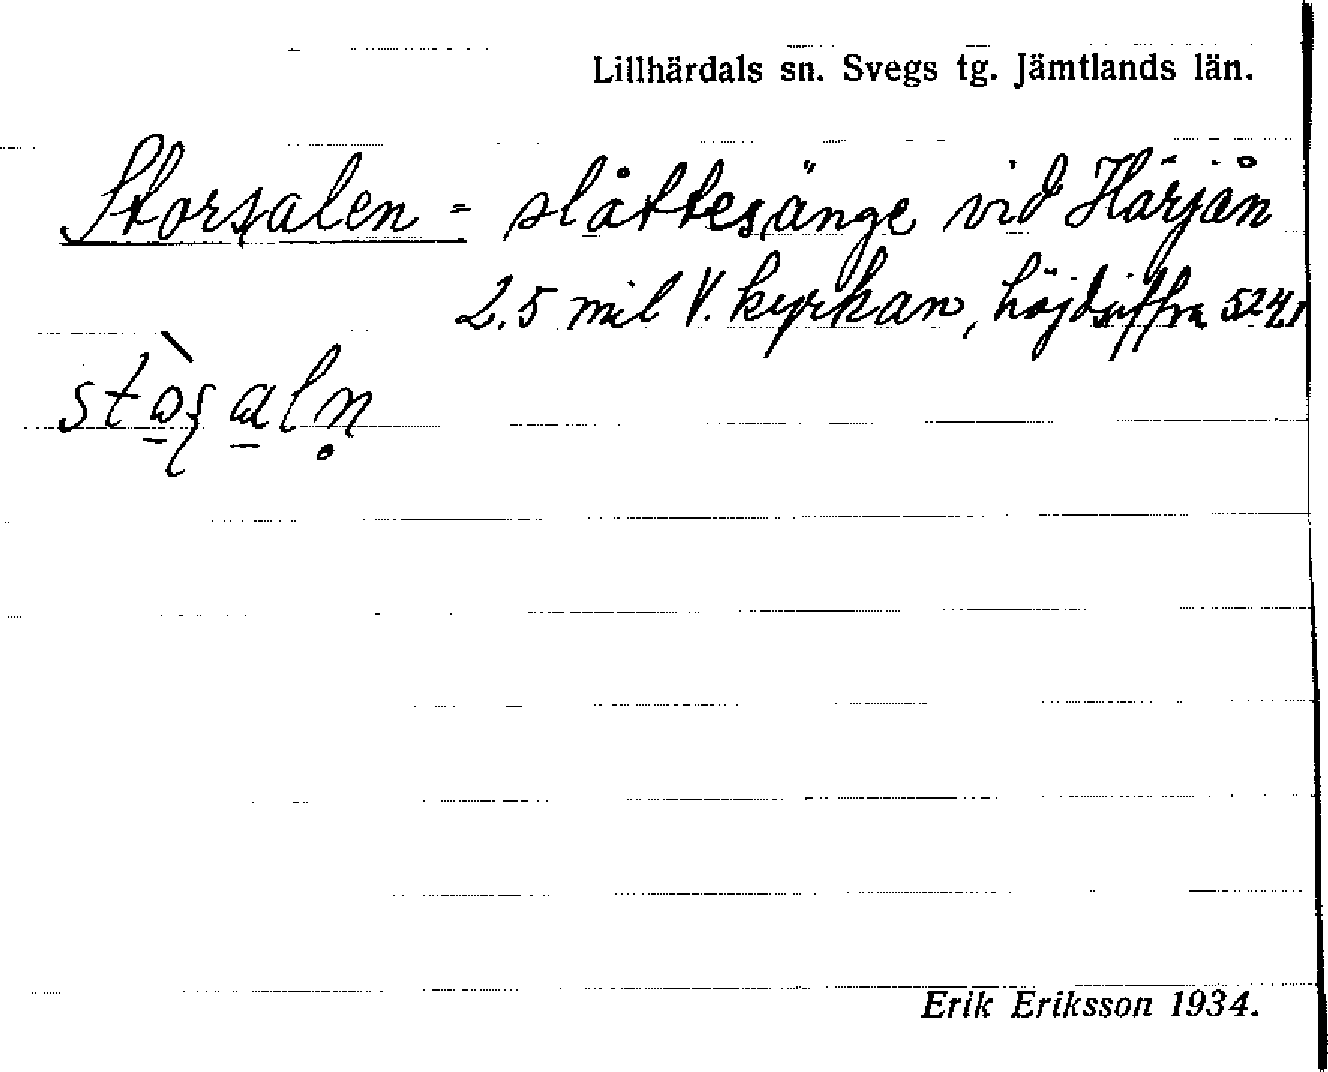 Lillhärdals sn. Svegs tg. Jämtlands län.
Storsalen = slåttesänge vid Härjån
2.5 mil V. kyrkan, höjdsiffra 524,1
Erik Eriksson 1934.